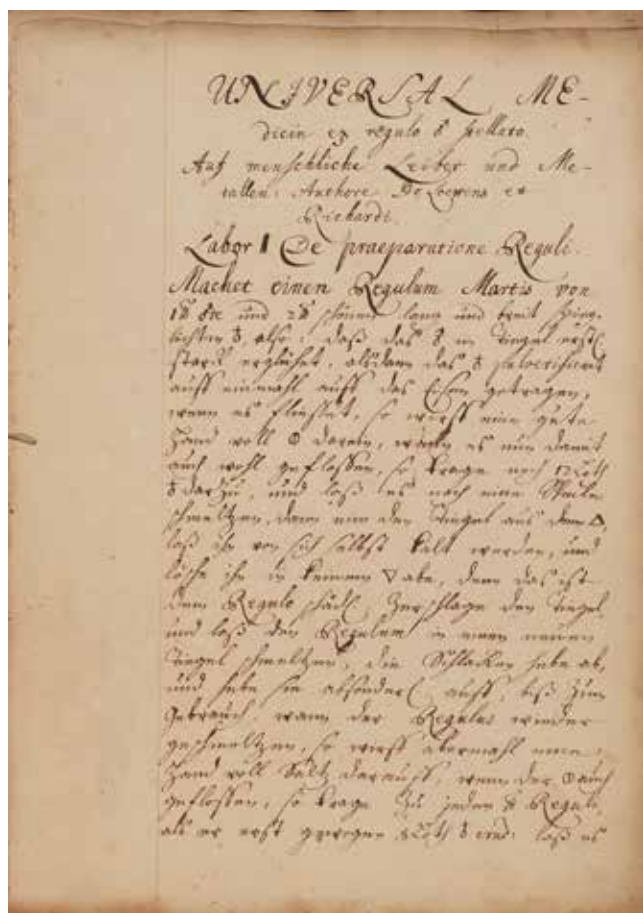 UNIVERSAL ME-
dicin ex regulo ♂ stellato.
Auf menschliche Leiber und Me-
tallen. Authore De Loewens et
Richardi.
Labor I De praeparatione Reguli.
Machet einen Regulum Martis von
und 2 ℔ schönen lang und breit
also: daß das ♂ im Tiegel erst
starck erglühet, alsdann das ♁ pulverisirt
auff einmahl auff das Eisen getragen,
wenn es fliesset, so wirff eine gute
Hand voll darein, wann es nun damit
auch wohl geflossen, so trage noch 12 Loth
♁ darzu, und laß es noch eine Weile
schmeltzen, dann nim den Tiegel aus dem △,
laß ihn von sich selbst kalt werden, und
lösche ihn in keinem ▽ abe, denn das ist
dem Regulo schädl. Zerschlage den Tiegel
und laß den Regulum in einem neuen
Tiegel schmeltzen, die Schlacken hebe ab,
und hebe sie absonderl. auff, biß zum
Gebrauch, wann der Regulus wieder
geschmeltzen, so wirff abermahl eine
Hand voll Saltz darauff, wenn der auch
geflossen, so trage zu jeden ℔ Reguli,
als er erst gewogen Loth ♁ crud: laß es